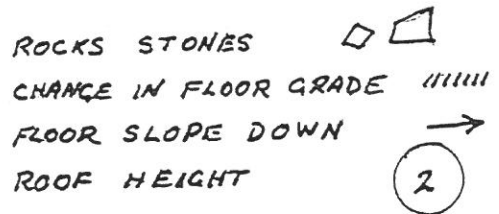 ROCKS STONES
CHANGE IN FLOOR GRADE
FLOOR SLOPE DOWN
ROOF HEIGHT 2